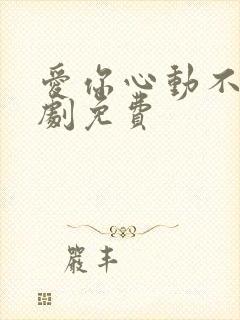 愛你心動不
劇免費
嚴丰